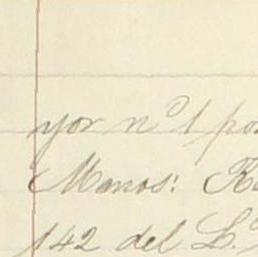 yor nº 1 po
Manos: R
142 del L.